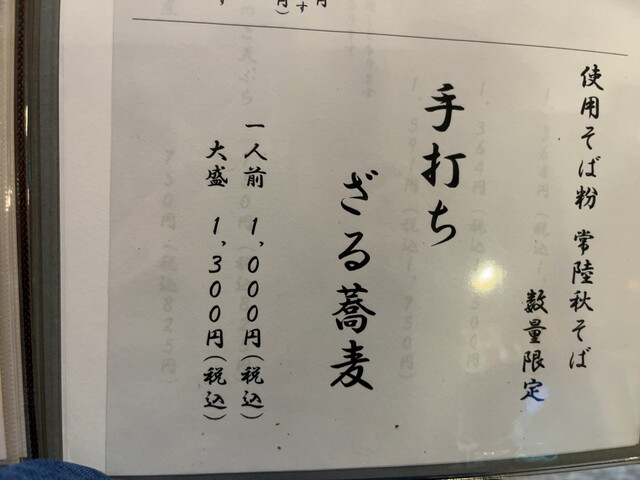 使用そば粉 常陸秋そば
数量限定
手打ち
ざる蕎麦
一人前 1,000円(税込)
大盛 1,300円(税込)